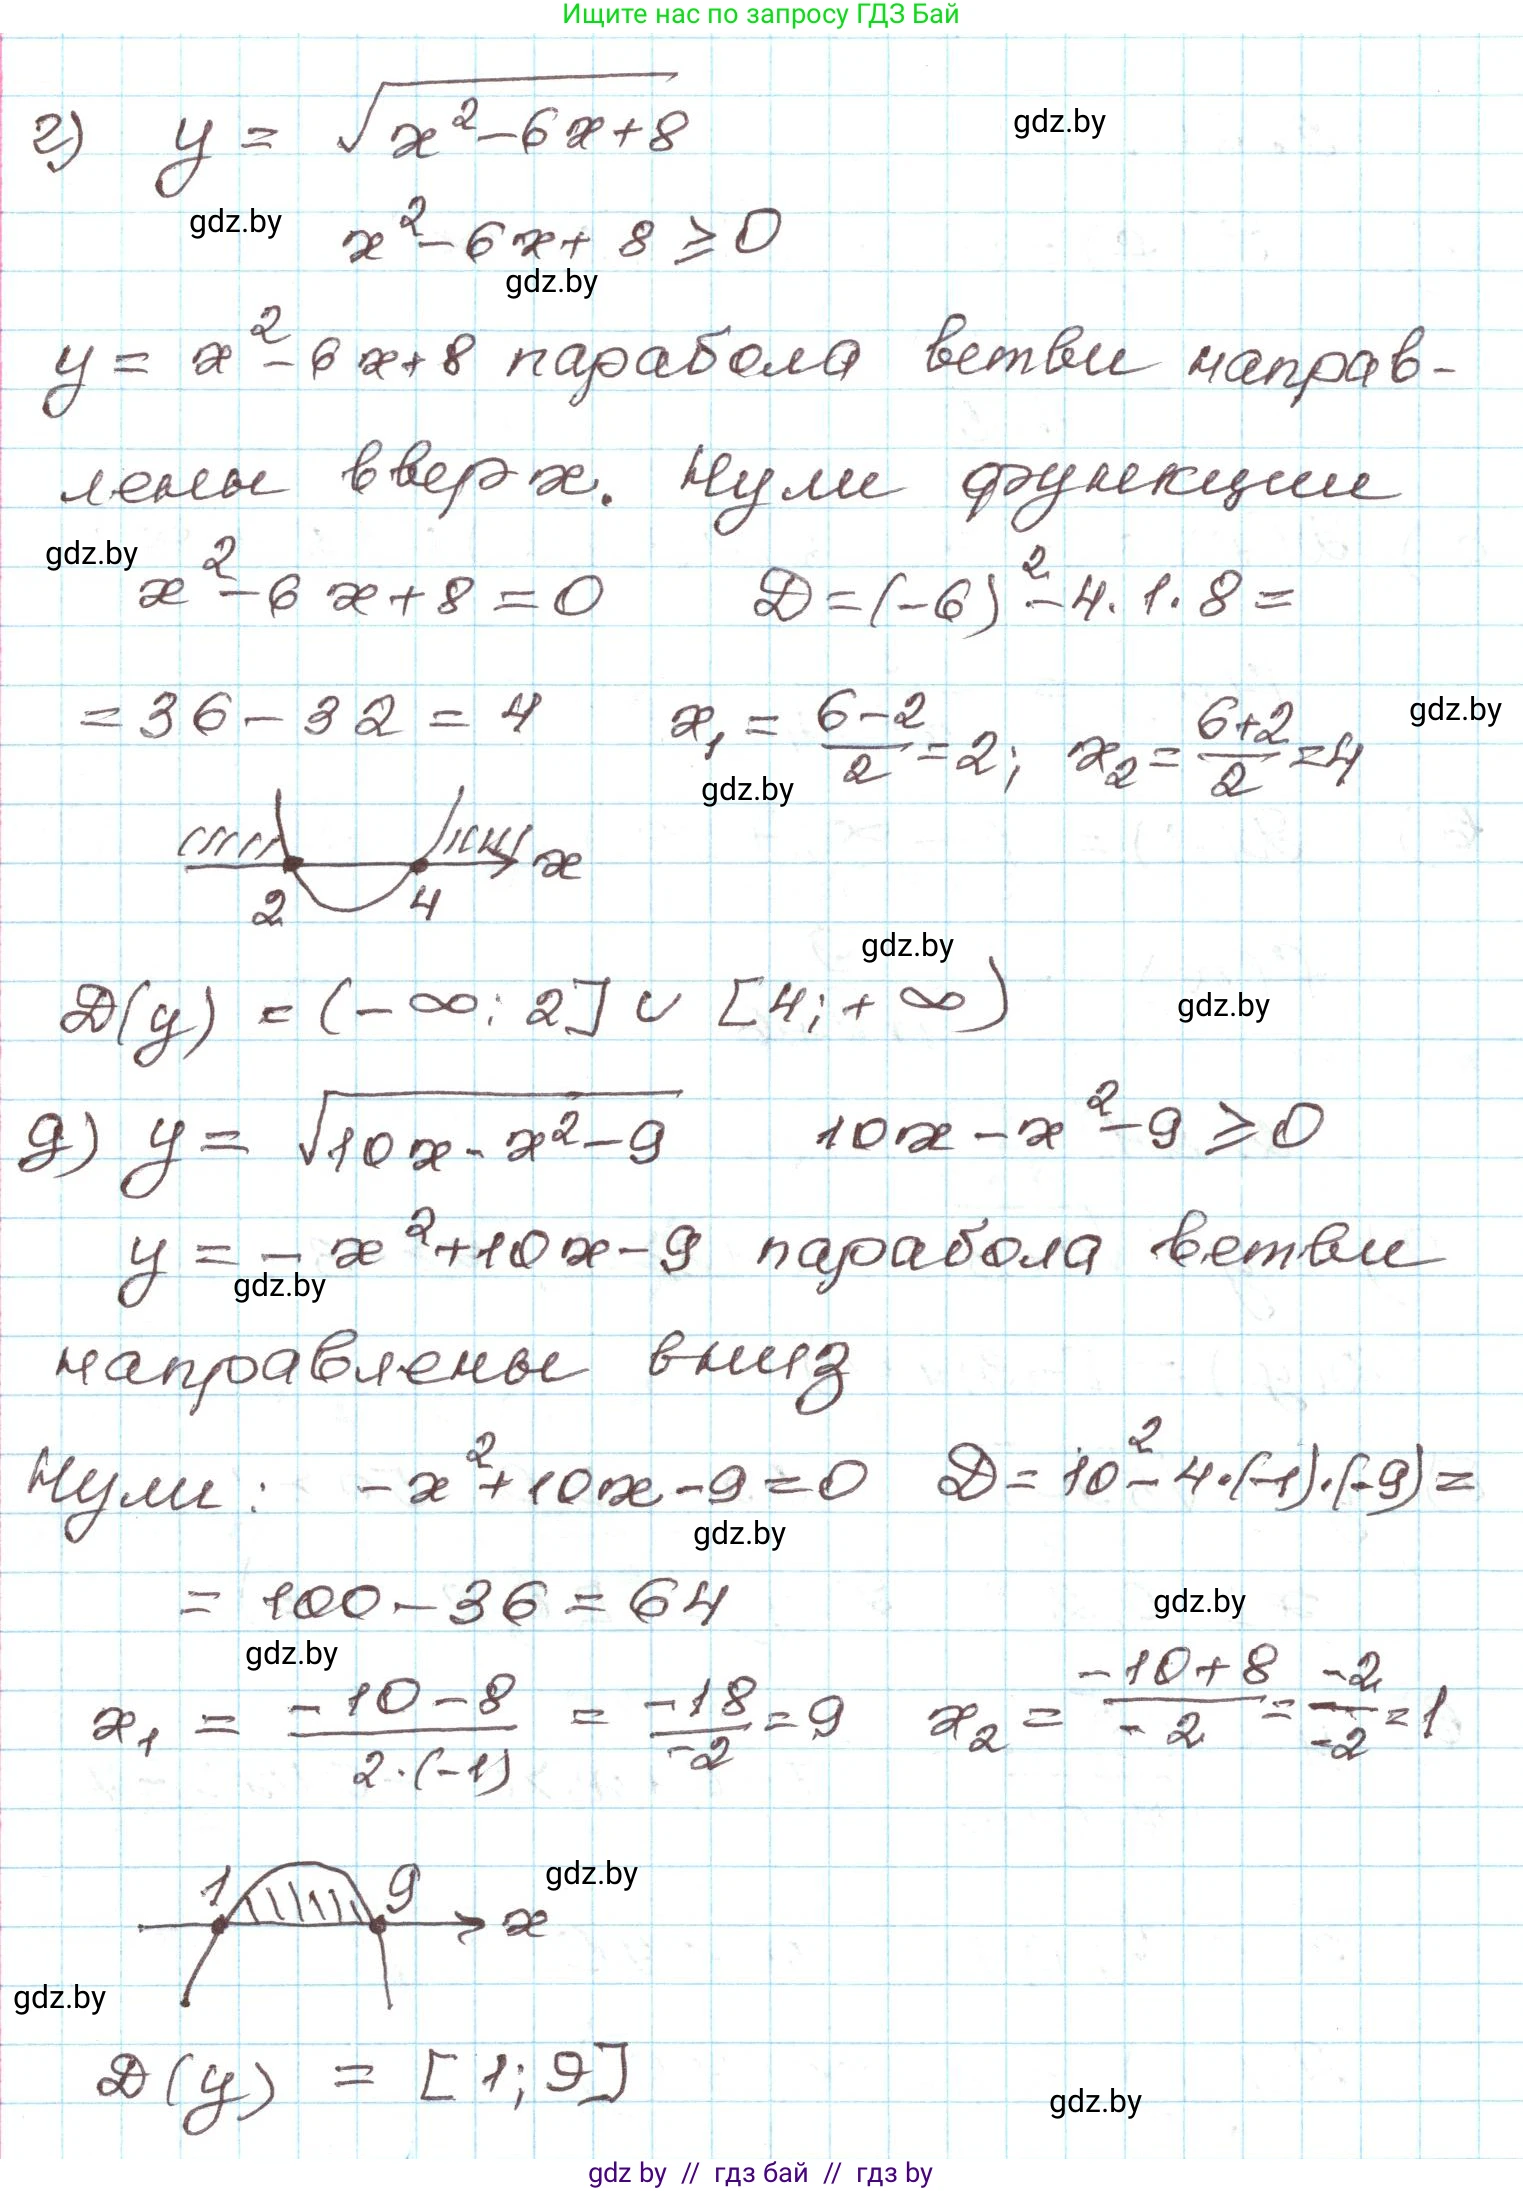 Ищите нас по запросу ГДЗ Бай
г) y = √(x²-6x+8) gdz.by
gdz.by x²-6x+8 ≥ 0
gdz.by
y = x²-6x+8 парабола ветви направ-
лены вверх. Нули функции
gdz.by x²-6x+8=0 D=(-6)²-4·1·8=
=36-32=4 x₁ = (6-2)/2 = 2; x₂ = (6+2)/2 = 4 gdz.by
gdz.by
x
2 4
gdz.by
D(y) = (-∞; 2] ∪ [4; +∞) gdz.by
д) y = √(10x-x²-9) 10x-x²-9 ≥ 0
y = -x²+10x-9 парабола ветви
gdz.by
направлены вниз
Нули: -x²+10x-9=0 D=10²-4·(-1)·(-9)=
gdz.by
= 100-36=64 gdz.by
gdz.by
x₁ = (-10-8)/(2·(-1)) = -18/-2 = 9 x₂ = (-10+8)/-2 = -2/-2 = 1
1 9 gdz.by
x
gdz.by
D(y) = [1; 9]
gdz.by
gdz by // гдз бай // гдз by